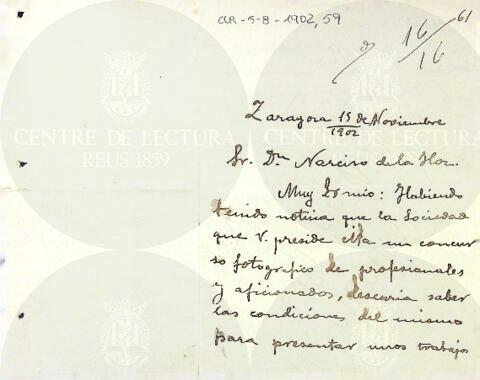 CLR-5-8-1902,59
61
16/16
Zaragoza 15 de Noviembre
1902
Sr. Dn Narciso de la Hoz.
Muy Sr mio: Habiendo
tenido noticia que la Sociedad
que V. preside un concur
so fotografico de profesionales
y aficionados, desearia saber
las condiciones del mismo
para presentar unos trabajos
CENTRE DE LECTURA
REUS 1859
CENTRE DE LECTURA
REUS 1859